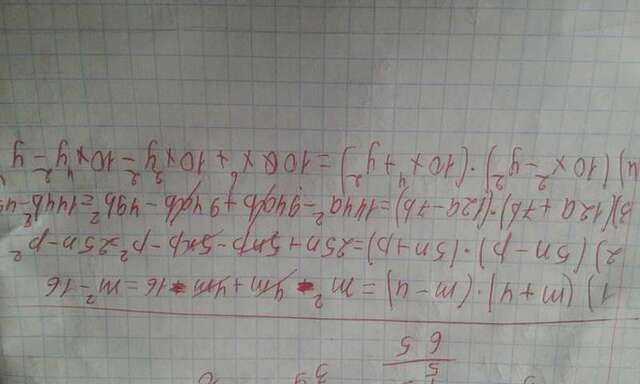 6 5
1) (m+4)·(m-4)=m²-4m+4m-16=m²-16
2) (5n-p)·(5n+p)=25n+5np-5np-p²=25n-p²
3)(12a+7b)·(12a-7b)=144a²-94ab+94ab-49b²=144b²-49
4) (10x²-y²)·(10x⁴+y²)=100x⁶+10x²y²-10x⁴y²-y